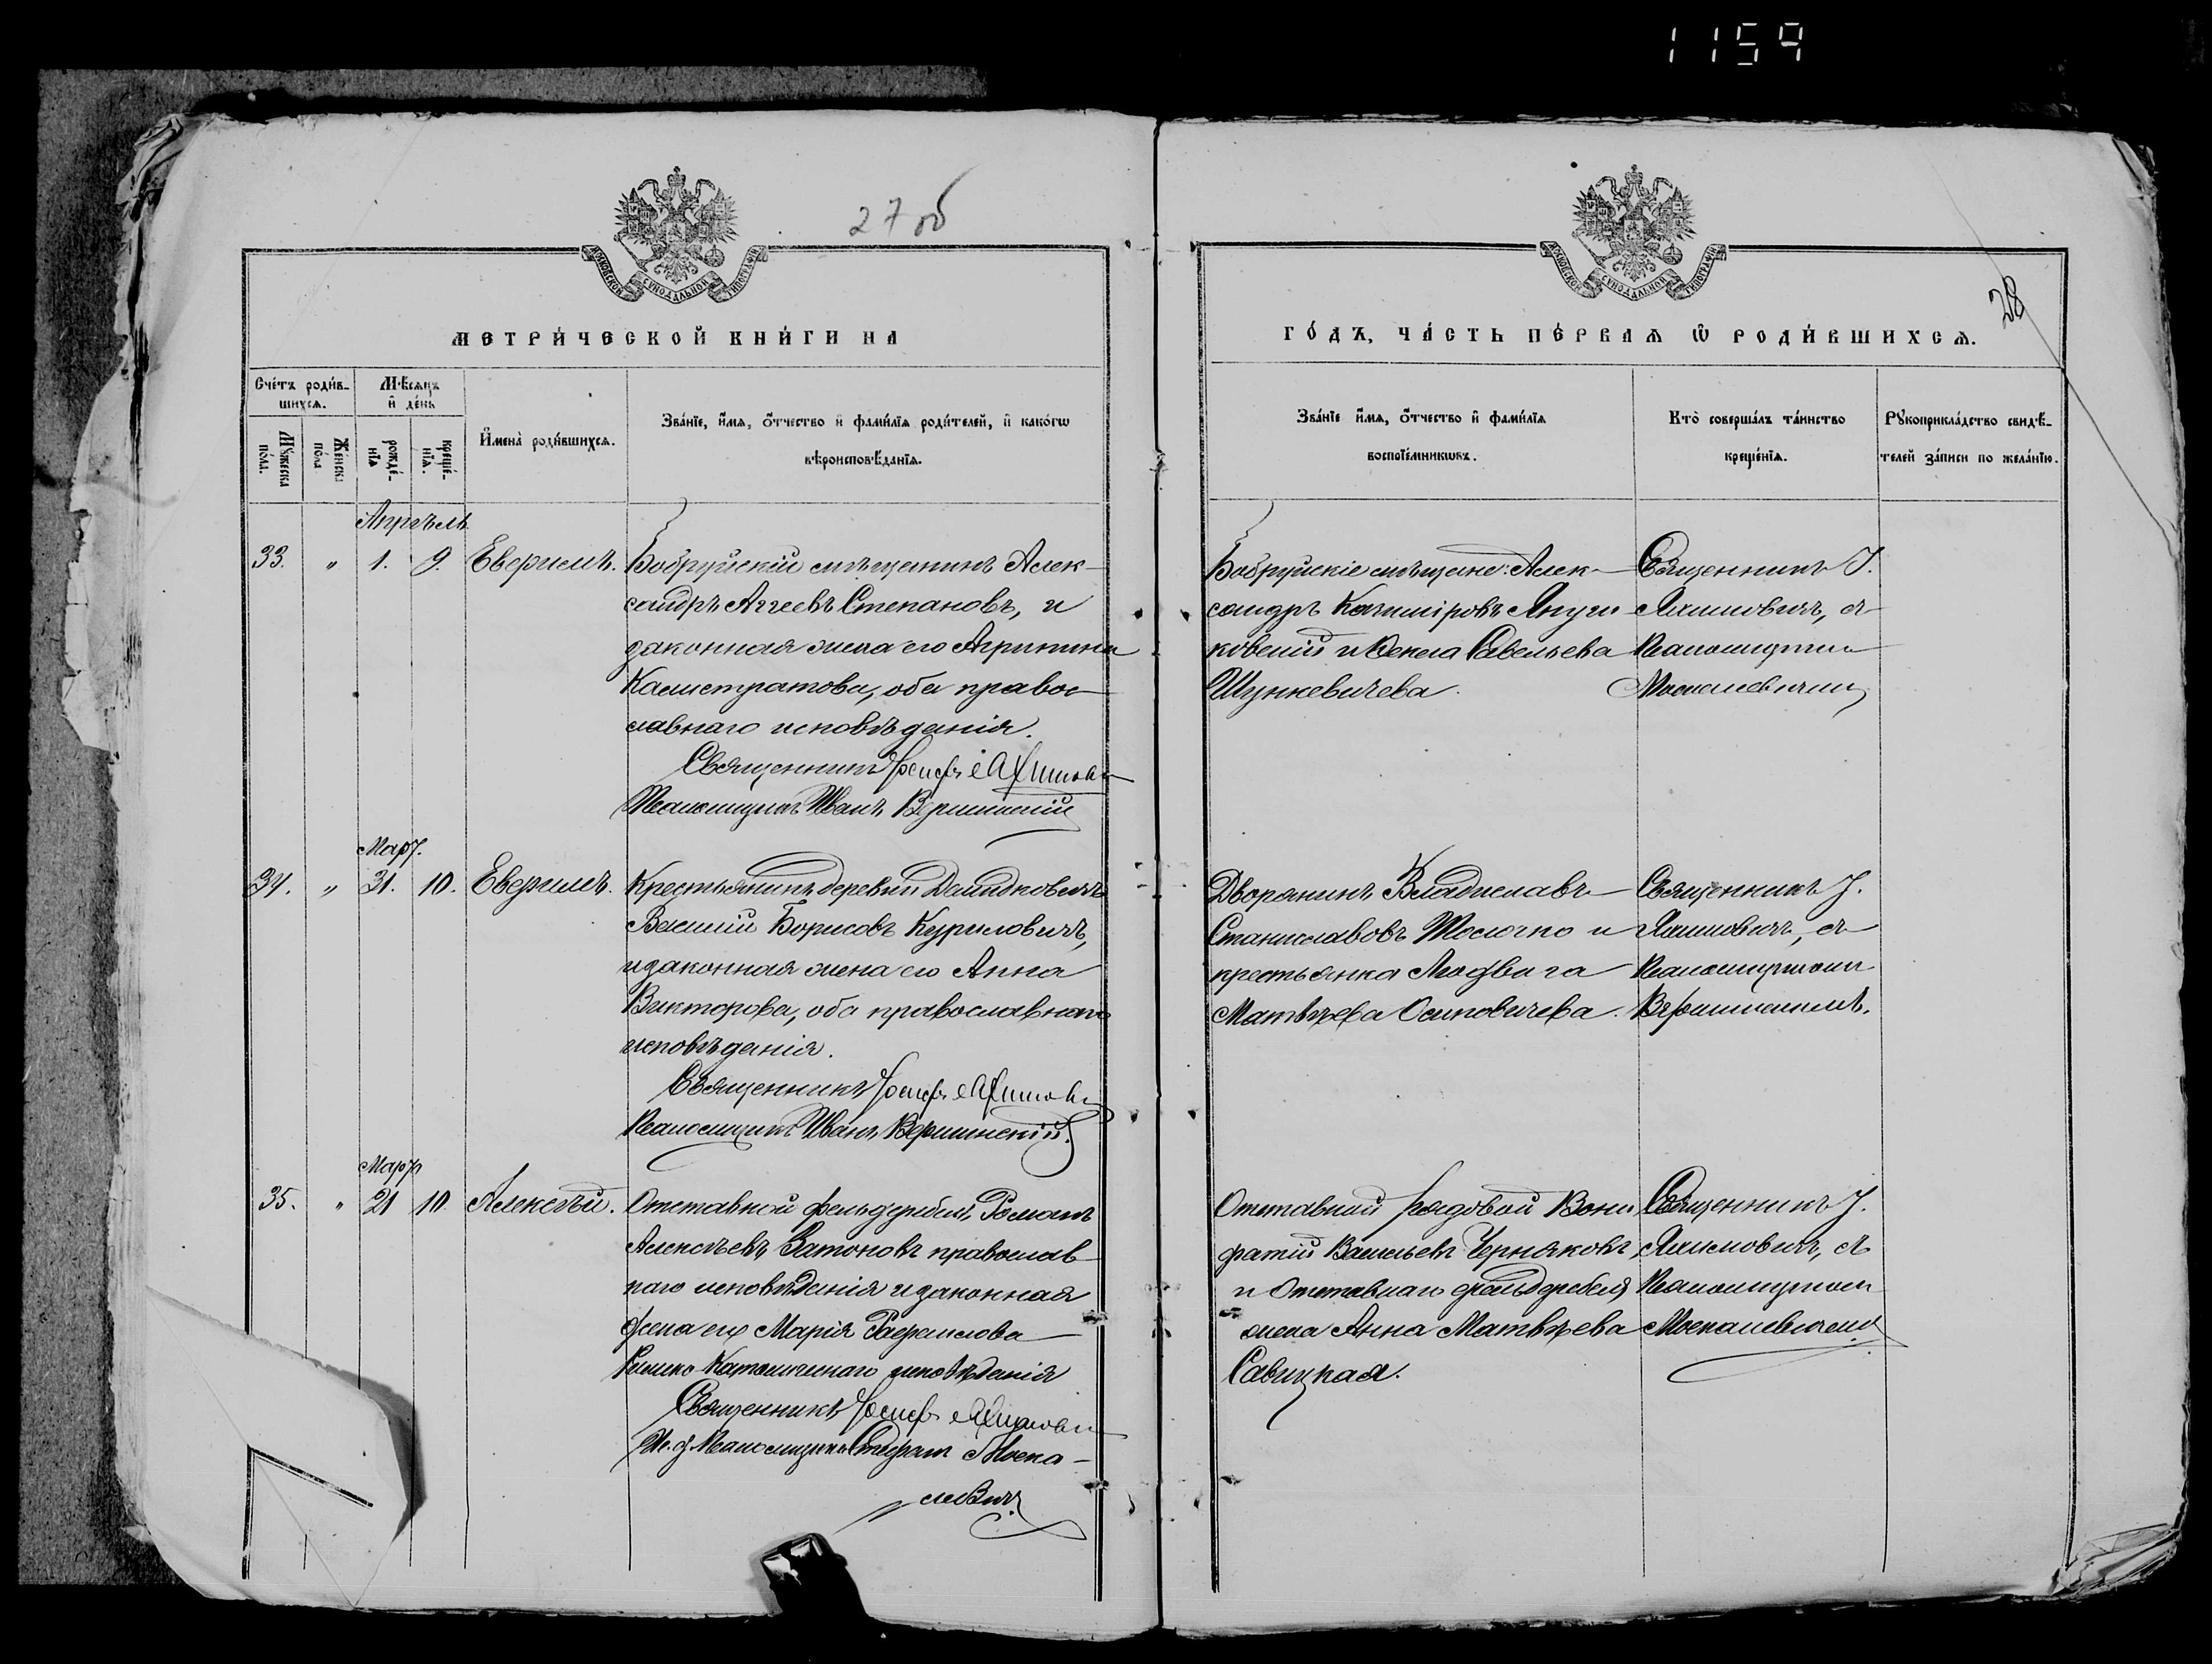 1159
27 об
МОСКОВСКОЙ СУНОДАЛЬНОЙ ТИПОГРАФІИ
МЕТРИ́ЧЕСКОЙ КНИ́ГИ НА
Сче́тъ роди́в-
шихсѧ.
Мꙋ́жеска
по́ла.
Же́нска
по́ла
Мѣ́сѧцъ
и҆ де́нь
рожде́-
нїѧ
креще́-
нїѧ.
И҆мена̀ роди́вшихсѧ.
Зва́нїе, и҆́мѧ, ѻ҆́тчество и҆ фами́лїѧ роди́телей, и҆ како́гѡ
вѣроисповѣ́данїѧ.
Апрѣль
33. " 1. 9. Евгеній.
Бобруйскій мѣщанинъ Алек-
сандръ Аггеевъ Степановъ, и
законная жена его Агрипина
Калистратова, оба правос-
лавнаго исповѣданія.
Священникъ Іосифъ
Псаломщикъ Иванъ Вершинскій
Мар.
34. " 31. 10. Евгеній.
Крестьянинъ деревни
Василій Борисовъ Куриловичъ,
и законная жена его Анна
Викторова, оба православнаго
исповѣданія.
Священникъ Іосифъ
Псаломщикъ Иванъ Вершинскій.
Мар.
35. " 21 10. Алексѣй.
Отставной фельдфебель Романъ
Алексѣевъ православ-
наго исповѣданія и законная
жена его Марія Рафаилова
Римско Католическаго исповѣданія
Священникъ Іосифъ
Ис. д. Псаломщика Стефанъ Моска-
левичъ
28
МОСКОВСКОЙ СУНОДАЛЬНОЙ ТИПОГРАФІИ
ГО́ДЪ, ЧА́СТЬ ПЕ́РВАѦ Ѡ҆ РОДИ́ВШИХСѦ.
Зва́нїе и҆́мѧ, ѻ҆́тчество и҆ фами́лїѧ
воспрїе́мникѡвъ.
Кто̀ соверша́лъ та́инство
креще́нїѧ.
Рꙋкоприкла́дство свидѣ́-
телей за́писи по жела́нїю.
Бобруйскіе мѣщане: Алек-
сандръ Казиміровъ Януш-
ковскій и Ѳекла Савельева
Шункевичева.
Священникъ І.
Яхимовичъ, съ
Псаломщикомъ
Москалевичемъ
Дворянинъ Владиславъ
Станиславовъ Толочко и
крестьянка Людвига
Матвѣева Осиповичева.
Священникъ І.
Яхимовичъ, съ
Псаломщикомъ
Вершинскимъ.
Отставной рядовой Вони
фатій Васильевъ Черняковъ
и Отставнаго фельдфебеля
жена Анна Матвѣева
Савицкая.
Священникъ І.
Яхимовичъ, съ
Псаломщикомъ
Москалевичемъ